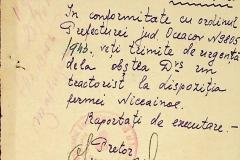 In conformitate cu ordinul
Prefecturei jud. Oceacov No 9805
/943. veți trimite de urgență
dela obștea Dvs un
tractorist la dispoziția
fermei
Raportați de executare. —
Pretor